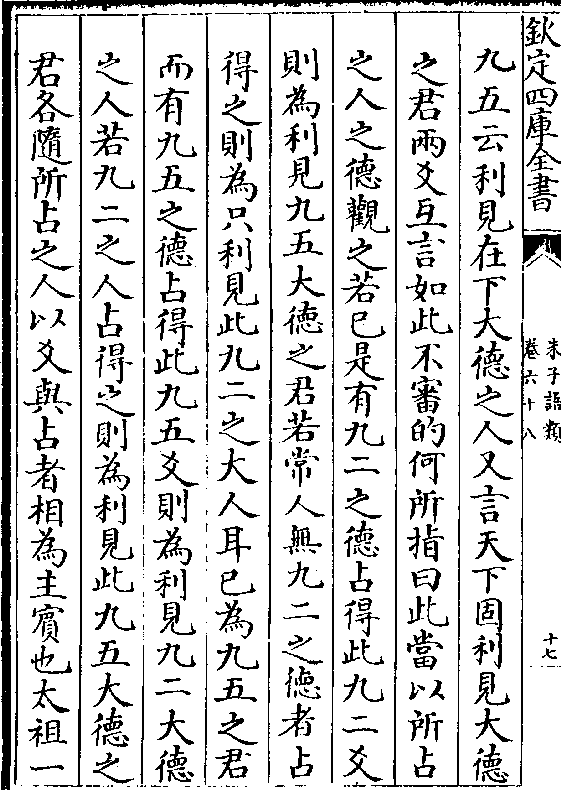 欽定四庫全書
朱子語類
卷六十八
十七
九五云利見在下大德之人又言天下固利見大德
之君兩爻互言如此不審的何所指曰此當以所占
之人之德觀之若已是有九二之德占得此九二爻
則為利見九五大德之君若常人無九二之德者占
得之則為只利見此九二之大人耳已為九五之君
而有九五之德占得此九五爻則為利見九二大德
之人若九二之人占得之則為利見此九五大德之
君各隨所占之人以爻與占者相為主賔也太祖一